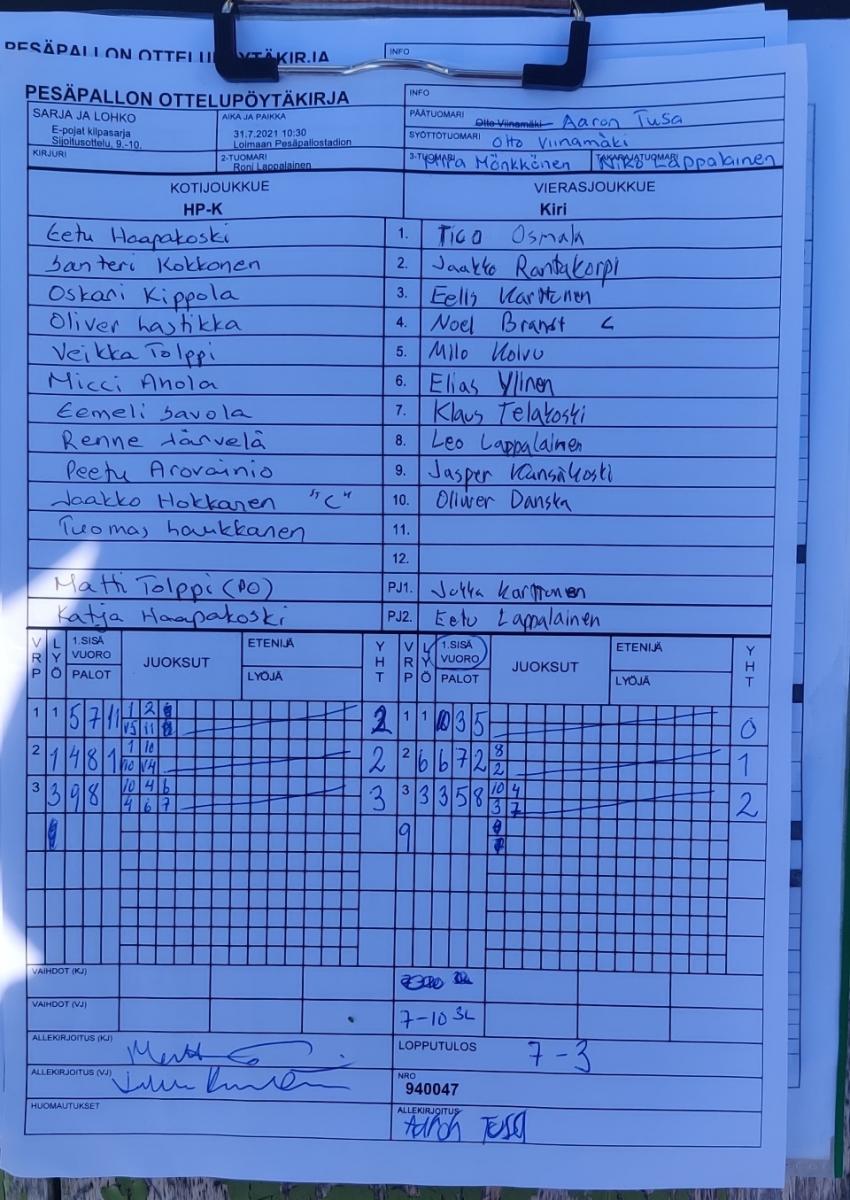 PESÄPALLON OTTELUPÖYTÄKIRJA
INFO
PESÄPALLON OTTELUPÖYTÄKIRJA
INFO
SARJA JA LOHKO
E-pojat kilpasarja
Sijoitusottelu, 9.-10.
AIKA JA PAIKKA
31.7.2021 10:30
Loimaan Pesäpallostadion
PÄÄTUOMARI
Otto Viinamäki Aaron Tusa
SYÖTTÖTUOMARI Otto Viinamäki
KIRJURI
2-TUOMARI
Roni Lappalainen
3-TUOMARI Mira Mönkkönen
TAKARAJATUOMARI Niko Lappalainen
KOTIJOUKKUE
HP-K
VIERASJOUKKUE
Kiri
Eetu Haapakoski 1. Tico Osmala
Santeri Kokkonen 2. Jaakko Rantakorpi
Oskari Kippola 3. Eelis Karttunen
Oliver Lastikka 4. Noel Brandt C
Veikka Tolppi 5. Milo Koivu
Micci Anola 6. Elias Ylinen
Eemeli Savola 7. Klaus Telakoski
Renne Järvelä 8. Leo Lappalainen
Peetu Arovainio 9. Jasper Kansikoski
Jaakko Hokkanen "C" 10. Oliwer Danska
Tuomas Laukkanen 11.
12.
Matti Tolppi (PO) PJ1. Jukka Karttunen
Katja Haapakoski PJ2. Eetu Lappalainen
VRP LYÖ 1.SISÄ VUORO PALOT JUOKSUT ETENIJÄ LYÖJÄ YHT VRP LYÖ 1.SISÄ VUORO PALOT JUOKSUT ETENIJÄ LYÖJÄ YHT
1 1 5 7 11 1 2 2 1 1 10 3 5 0
V5 11
2 1 4 8 1 1 10 2 2 6 6 7 2 8 1
10 V4 2
3 3 9 8 10 4 6 3 3 3 3 5 8 10 4 2
4 6 7 3 7
9
VAIHDOT (KJ)
VAIHDOT (VJ)
7-10 3L
ALLEKIRJOITUS (KJ)
LOPPUTULOS 7-3
ALLEKIRJOITUS (VJ)
NRO
940047
HUOMAUTUKSET
ALLEKIRJOITUS
Aaron Tusa